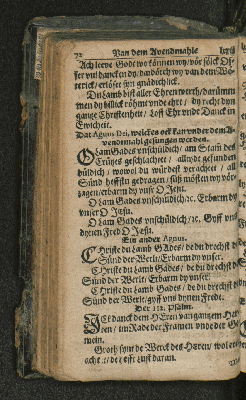 72 Van dem Avendmahle
Ach leeve Gode wo können wy vör sölck Of-
fer vul danck en dy / dardörch wy van dem Vö-
rerick / erlöset syn gnädichlick.
Du Lamb bist aller Ehren werth / darümm
men dy billick röhmt vnde ehrt / dy recht dyn
gantze Christenheit / Loff Ehr vnde Danck in
Ewicheit.
Dat Agnus Dei, welckes ock kan vnder dem A-
vendmahl gesungen werden.
O Lam Gades vnschüldich / am Stam des
Crützes geschlachtet / alltydt gefunden
düldich / wowol du würdest verachtet / all
Sünd heffstu gedragen / süß mösten wy vör-
zagen / erbarm dy vnser O Jesu.
O Lam Gades vnschüldich / ꝛc. Erbarm dy
vnser O Jesu.
O Lam Gades vnschüldich / ꝛc. Gyff vns
dynen Fred O Jesu.
Ein ander Agnus.
Christe du Lamb Gades / de du drechst d
Sünd der Werlt / Erbarm dy vnser.
Christe du Lamb Gades / de du drechst d
Sünd der Werlt / Erbarm dy vnser.
Christe du Lamb Gades / de du drechst d
Sünd der Werlt / gyff vns dynen Frede.
Der 111. Psalm.
Ick danck dem HEren van gantzem Her-
ten / im Rade der Framen vnde der G
mein.
Groth syn de Werck des HEren / wol
acht /